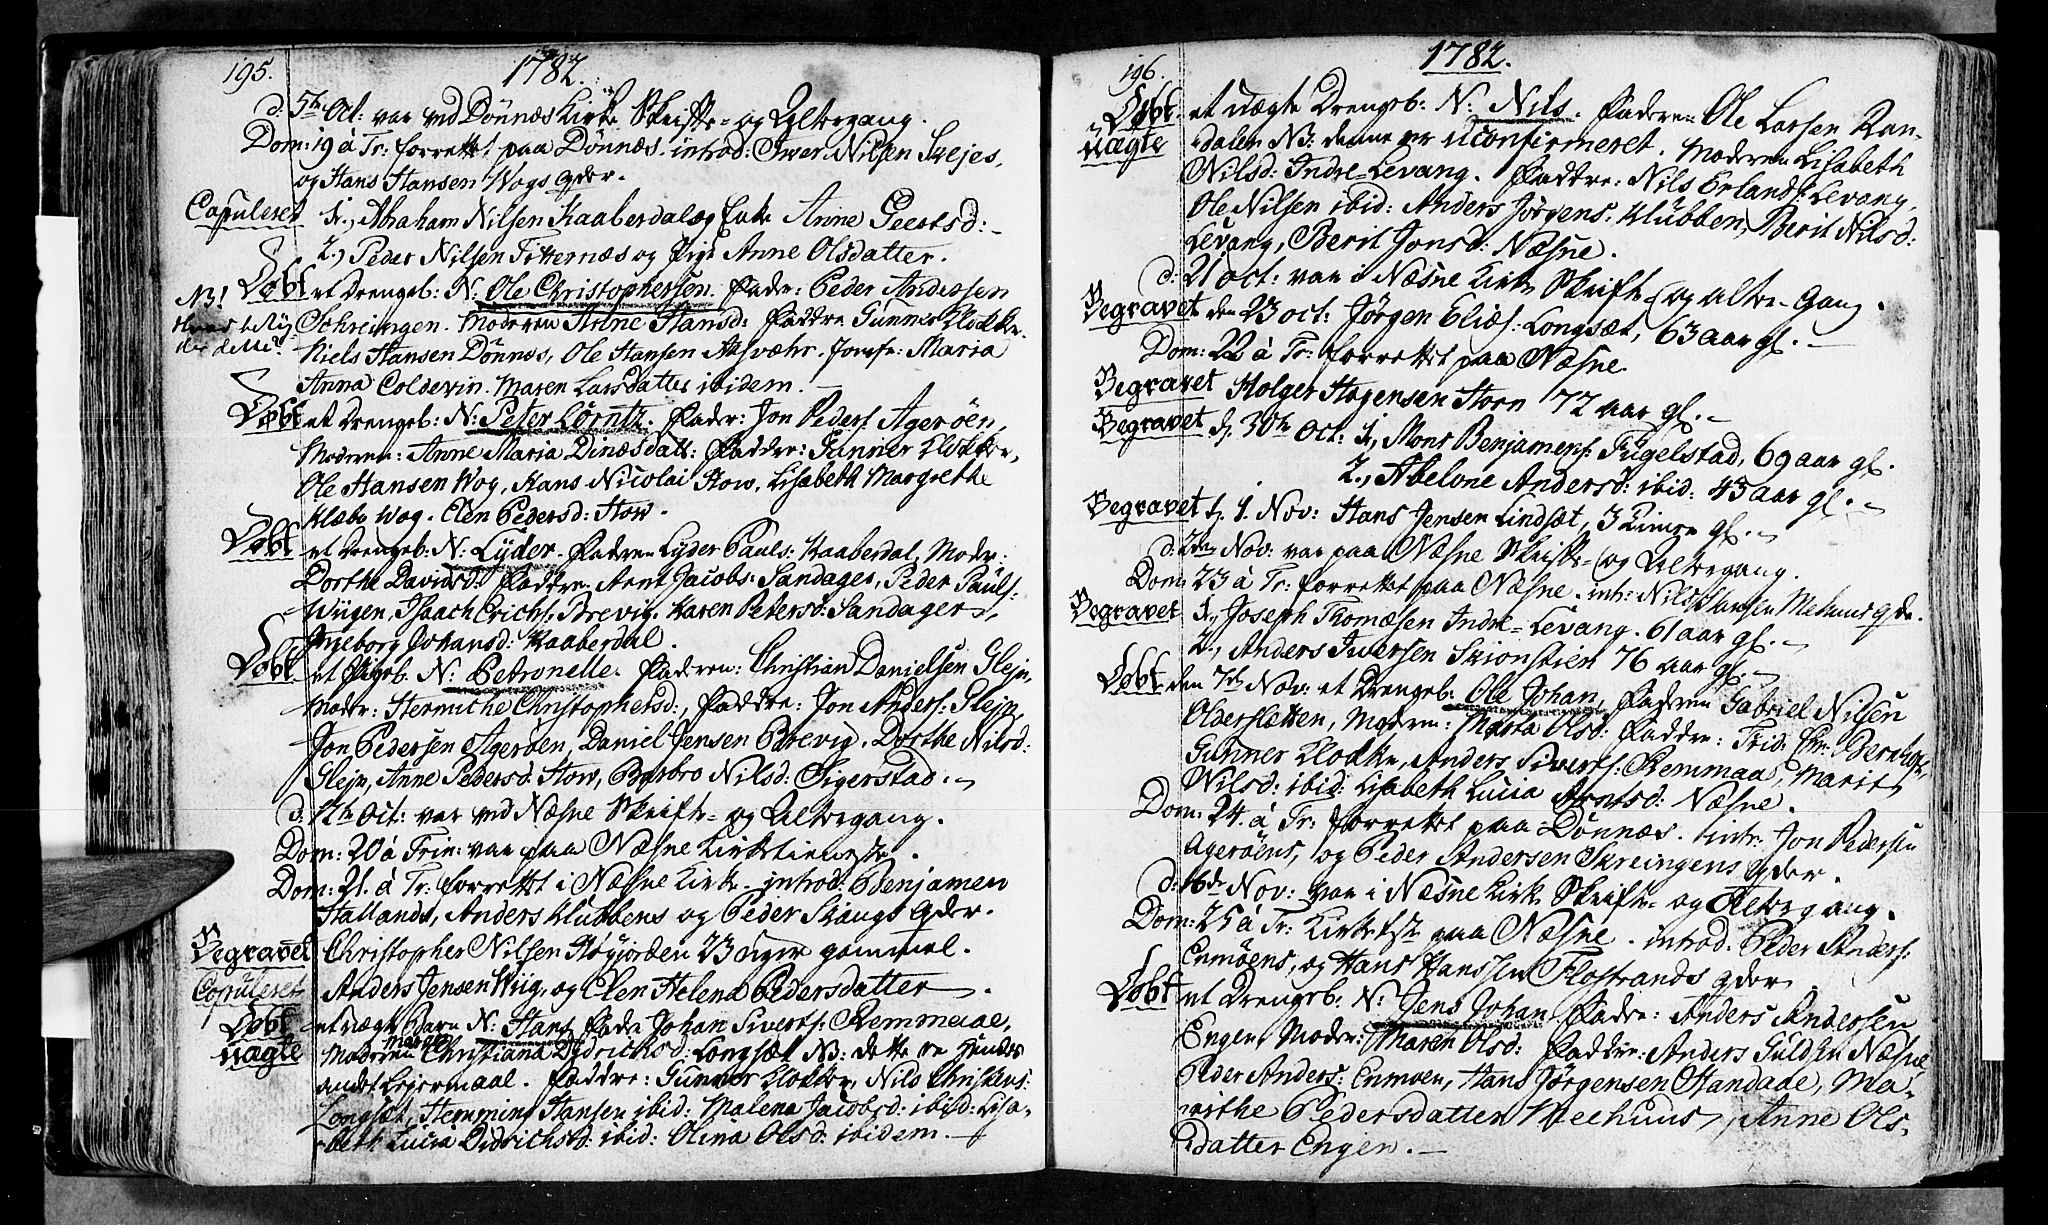 195.
1782.
d. 5te Oct: var ved Dönnæs Kirke Skrifte- og Altergang.
Dom: 19 à Tr: forrettet paa Dönnæs. introd: Iver Nilsen Skejes,
og Hans Hansen Wogs qder.
Copuleret 1., Abraham Nilsen Kaaberdal og Enke Anne Geertsd:
2., Peder Nilsen Titternæs og Pige Anne Olsdatter.
Döbt et Drengeb: N: Ole Christophersen. Fader: Peder Andersen
NB! Schreingen. Moderen Anne Hansd: Faddre Gunner Klokker
Hvad betyder dette?
Niels Hansen Dönnæs, Ole Hansen Aasvæhr. Jomfr: Maria
Anna Coldevin. Maren Larsdatter ibidem.
Döbt et Drengeb: N: Peter Lorntz. Fader: Jon Peders: Ageröen,
Moderen: Anne Maria Dinæsdatt: Faddre: Gunner Klokker,
Ole Hansen Wog, Hans Nicolai Stow, Lisabeth Margrethe
Klæbo Wog. Elen Pedersd: Stow.
Döbt et Drengeb: N: Lyder. Faderen Lyder Pauls: Kaaberdal, Moder:
Dorthe Davidsd: Faddre Arnt Jacobs: Sandager, Peder Pauls:
Wiigen, Isaach Erichs: Brevig. Karen Petersd: Sandager,
Ingeborg Johansd: Kaaberdal.
Döbt et Pigeb. N: Petronelle. Faderen: Christian Danielsen Glejn,
Moder: Hermiche Christophersd:, Faddre: Jon Anders: Glejn,
Jon Pedersen Ageröen, Daniel Jensen Brevig. Dorthe Nilsd:
Glejn, Anne Pedersd: Stow, Barbro Nilsd: Sigerstad.
d: 12te Oct: var ved Næsne Skrift- og Altergang.
Dom: 20 à Trin: var paa Næsne Kirketieneste.
Dom: 21. à Tr: forrettet i Næsne Kirke introd: Benjamen
Hallands, Anders Klubbens og Peder Skaugs qder.
Begravet Christopher Nilsen Höyjorden 23 Uger gammel.
Copuleret Anders Jensen Wiig, og Elen Helena Pedersdatter.
Döbt uægte et uægte Barn N: Hans Fader Johan Siverts: Remmaae,
Moderen Maren Christiana Didrichsd: Longsæt NB: dette er hendes
andet Lejermaal. Faddre: Gunner Klokker, Nils Christens:
Longsæt, Hemming Hansen ibid: Malena Jacobsd: ibid: Lisa-
beth Lucia Didrichsd: ibid: Olina Olsd: ibidem.
196.
1782.
Döbt uægte et uægte Drengeb: N: Nils. Faderen Ole Larsen Ran-
dalen NB: denne er uconfirmeret. Moderen Lisabeth
Nilsd: Indre-Levang. Faddre: Nils Erlands: Levang,
Ole Nilsen ibid: Anders Jörgens: Klübben, Berit Nilsd:
Levang, Berit Jonsd: Næsne.
d: 21 Oct: var i Næsne Kirke Skrift- og Alter-Gang.
Begravet den 23 oct: Jörgen Elias: Longsæt, 63 aar gl.
Dom: 22 à Tr: forrettet paa Næsne
Begravet Holger Hagensen Horn 72 aar gl.
Begravet d. 30te Oct: 1., Mons Benjamens: Fugelstad, 69 aar gl.
2., Abelone Andersd: ibid: 43 aar gl.
Begravet d. 1. Nov: Hans Jensen Lindsæt, 3 Timer gl.
d: 2den Nov: var paa Næsne Skrifte- og Altergang.
Dom: 23 à Tr: forrettet paa Næsne. int: Nils Hansen Mehuus qder.
Begravet 1., Joseph Thomæsen Indre-Levang. 61 aar gl.
2., Anders Iwersen Skionstien 76 aar gl.
Döbt den 7de Nov: et Drengeb: Ole Johan, Faderen Gabriel Nilsen
Oldersletten, Moderen: Marta Olsd: Faddre: Frid: Chr: Bernhoft,
Gunner Klokker, Anders Siverts: Remmaa, Marit
Nilsd: ibid: Lisabeth Lucia Arntsd: Næsne.
Dom: 24. à Tr: forrettet paa Dönnæs. intr: Jon Pedersen
Ageröens, og Peder Andersen Skreingens qder.
d: 16de Nov: var i Næsne Kirke Skrift- og Altergang.
Dom: 25 à Tr: Kirketst: paa Næsne. introd: Peder Anders:
Enmöens, og Hans Hanssen Flostrands qder
Döbt et Drengeb: N: Jens Johan Fader: Anders Andersen
Engen, Moder: Maren Olsd: Faddre: Anders Guldsen Næsne
Peder Anders: Enmoen, Hans Jörgensen Handaae, Ma-
rithe Pedersdatter Meehuus, Anne Ols-
datter Engen.